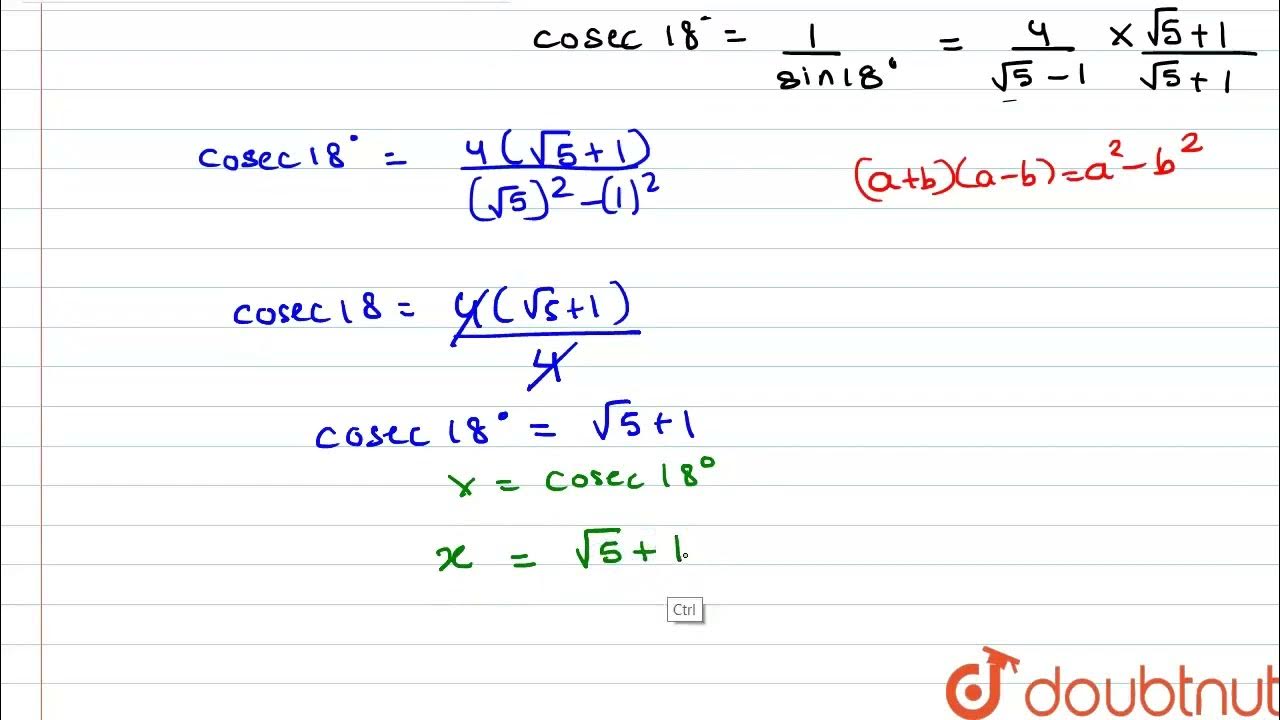 cosec 18° = 1/sin18° = 4/(√5 - 1) × (√5 + 1)/(√5 + 1)
cosec18° = 4(√5 + 1)/((√5)² - (1)²)
(a+b)(a-b) = a² - b²
cosec18 = 4(√5+1)/4
cosec 18° = √5 + 1
x = cosec 18°
x = √5 + 1
Ctrl
doubtnut